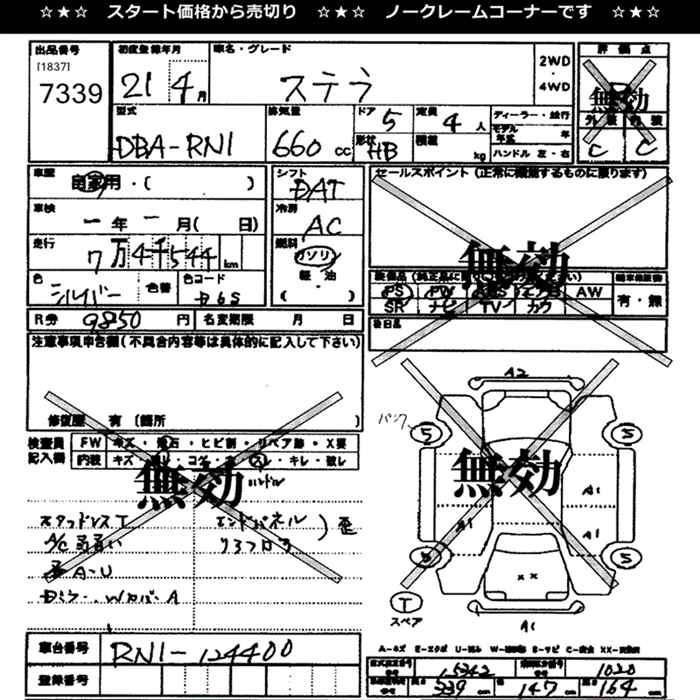 ☆★☆ スタート価格から売切り ☆★☆ ノークレームコーナーです ☆★☆
出品番号
[1837]
7339
初度登録年月
21 4月
車名・グレード
ステラ
2WD
・
4WD
評価点
無効
外装 内装
C C
型式
DBA-RN1
排気量
660cc
ドア 5
形状 HB
定員 4人
積載 kg
ディーラー・並行
モデル年式 年
ハンドル 左・右
車歴
自家用・( )
車検
一年一月( 日)
走行
7万4千544km
色
シルバー
色替
色コード
D6S
シフト
DAT
冷房
AC
燃料
ガソリン
軽・油
( )
セールスポイント(正常に機能するものに限ります)
無効
PS PW AW
SR ナビ TV カワ
有・無
後日品
R券 9850円
名変期限 月 日
注意事項申告欄(不具合内容等は具体的に記入して下さい)
修復歴 有 (箇所 )
検査員
記入欄
FW キズ・飛石・ヒビ割・リペア跡・X要
内装 キズ・コゲ・キレ・破レ
無効
ハンドル
スタッドレスT
エンドパネル
歪
A/C
A-U
A
A2
パンク
5 5
無効
A1
A1 A1
5 5
T
スペア
A1
車台番号
RN1-124400
登録番号
A-キズ E-エクボ
15242
1020
339cm
147cm
164cm